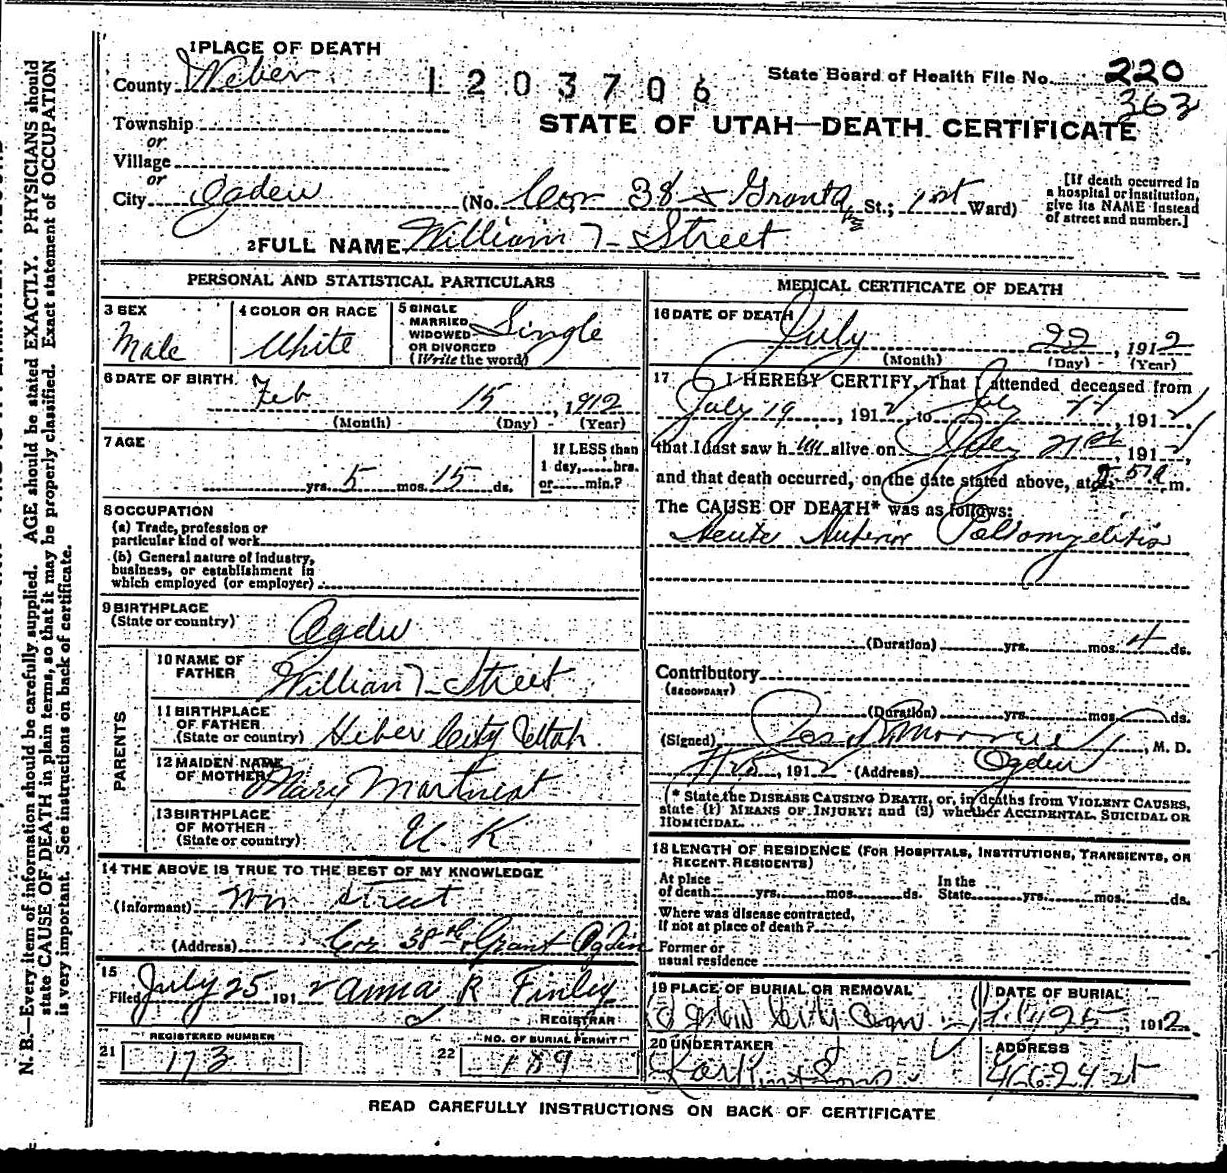 1 PLACE OF DEATH
County Weber
1203706
State Board of Health File No. 220
363
Township
or
Village
or
City Ogden
STATE OF UTAH—DEATH CERTIFICATE
(No. Cor 38 & Grant St.; 1st Ward)
[If death occurred in
a hospital or institution,
give its NAME instead
of street and number.]
2 FULL NAME William T Street
PERSONAL AND STATISTICAL PARTICULARS
3 SEX
Male
4 COLOR OR RACE
White
5 SINGLE
MARRIED
WIDOWED
OR DIVORCED
(Write the word)
Single
6 DATE OF BIRTH
Feb 15, 1912
(Month) (Day) (Year)
7 AGE
yrs. 5 mos. 15 ds.
If LESS than
1 day, hrs.
or min.?
8 OCCUPATION
(a) Trade, profession or
particular kind of work
(b) General nature of industry,
business, or establishment in
which employed (or employer)
9 BIRTHPLACE
(State or country)
Ogden
PARENTS
10 NAME OF
FATHER
William T Street
11 BIRTHPLACE
OF FATHER
(State or country)
Heber City Utah
12 MAIDEN NAME
OF MOTHER
Mary
13 BIRTHPLACE
OF MOTHER
(State or country)
U. K
14 THE ABOVE IS TRUE TO THE BEST OF MY KNOWLEDGE
(Informant) Wm Street
(Address) Cor 38th & Grant Ogden
15
Filed July 25 1912 Anna R Finley
REGISTRAR
REGISTERED NUMBER
21 173
NO. OF BURIAL PERMIT
22 189
MEDICAL CERTIFICATE OF DEATH
16 DATE OF DEATH
July 22, 1912
(Month) (Day) (Year)
17 I HEREBY CERTIFY, That I attended deceased from
July 19, 1912, to July 22 1912,
that I last saw him alive on July 21st, 1912,
and that death occurred, on the date stated above, at m.
The CAUSE OF DEATH* was as follows:
Acute Anterior Poliomyelitis
(Duration) yrs. mos. 4 ds.
Contributory
(SECONDARY)
(Duration) yrs. mos. ds.
(Signed) , M. D.
7/25, 1912 (Address) Ogden
(* State the DISEASE CAUSING DEATH, or, in deaths from VIOLENT CAUSES,
state (1) MEANS OF INJURY; and (2) whether ACCIDENTAL, SUICIDAL OR
HOMICIDAL.
18 LENGTH OF RESIDENCE (FOR HOSPITALS, INSTITUTIONS, TRANSIENTS, OR
RECENT RESIDENTS)
At place
of death yrs. mos. ds.
In the
State yrs. mos. ds.
Where was disease contracted,
if not at place of death?
Former or
usual residence
19 PLACE OF BURIAL OR REMOVAL
Ogden City Cem
DATE OF BURIAL
1912
20 UNDERTAKER
ADDRESS
READ CAREFULLY INSTRUCTIONS ON BACK OF CERTIFICATE
N. B.—Every item of information should be carefully supplied. AGE should be stated EXACTLY. PHYSICIANS should
state CAUSE OF DEATH in plain terms, so that it may be properly classified. Exact statement of OCCUPATION
is very important. See instructions on back of certificate.